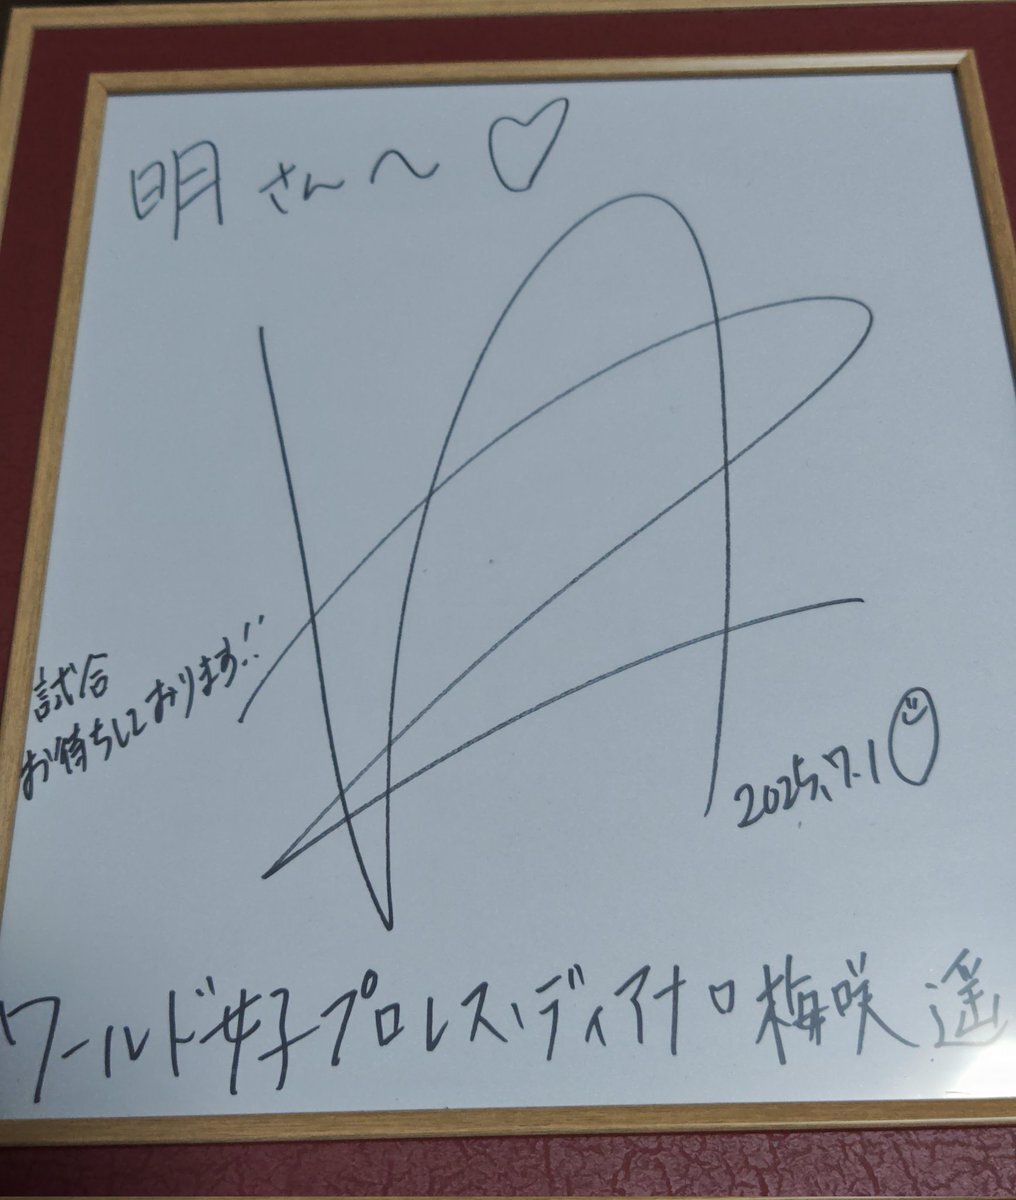 明さんへ♡
試合
お待ちしております!!
2025.7.1
ワールド女子プロレス・ディアナ 梅咲 遥